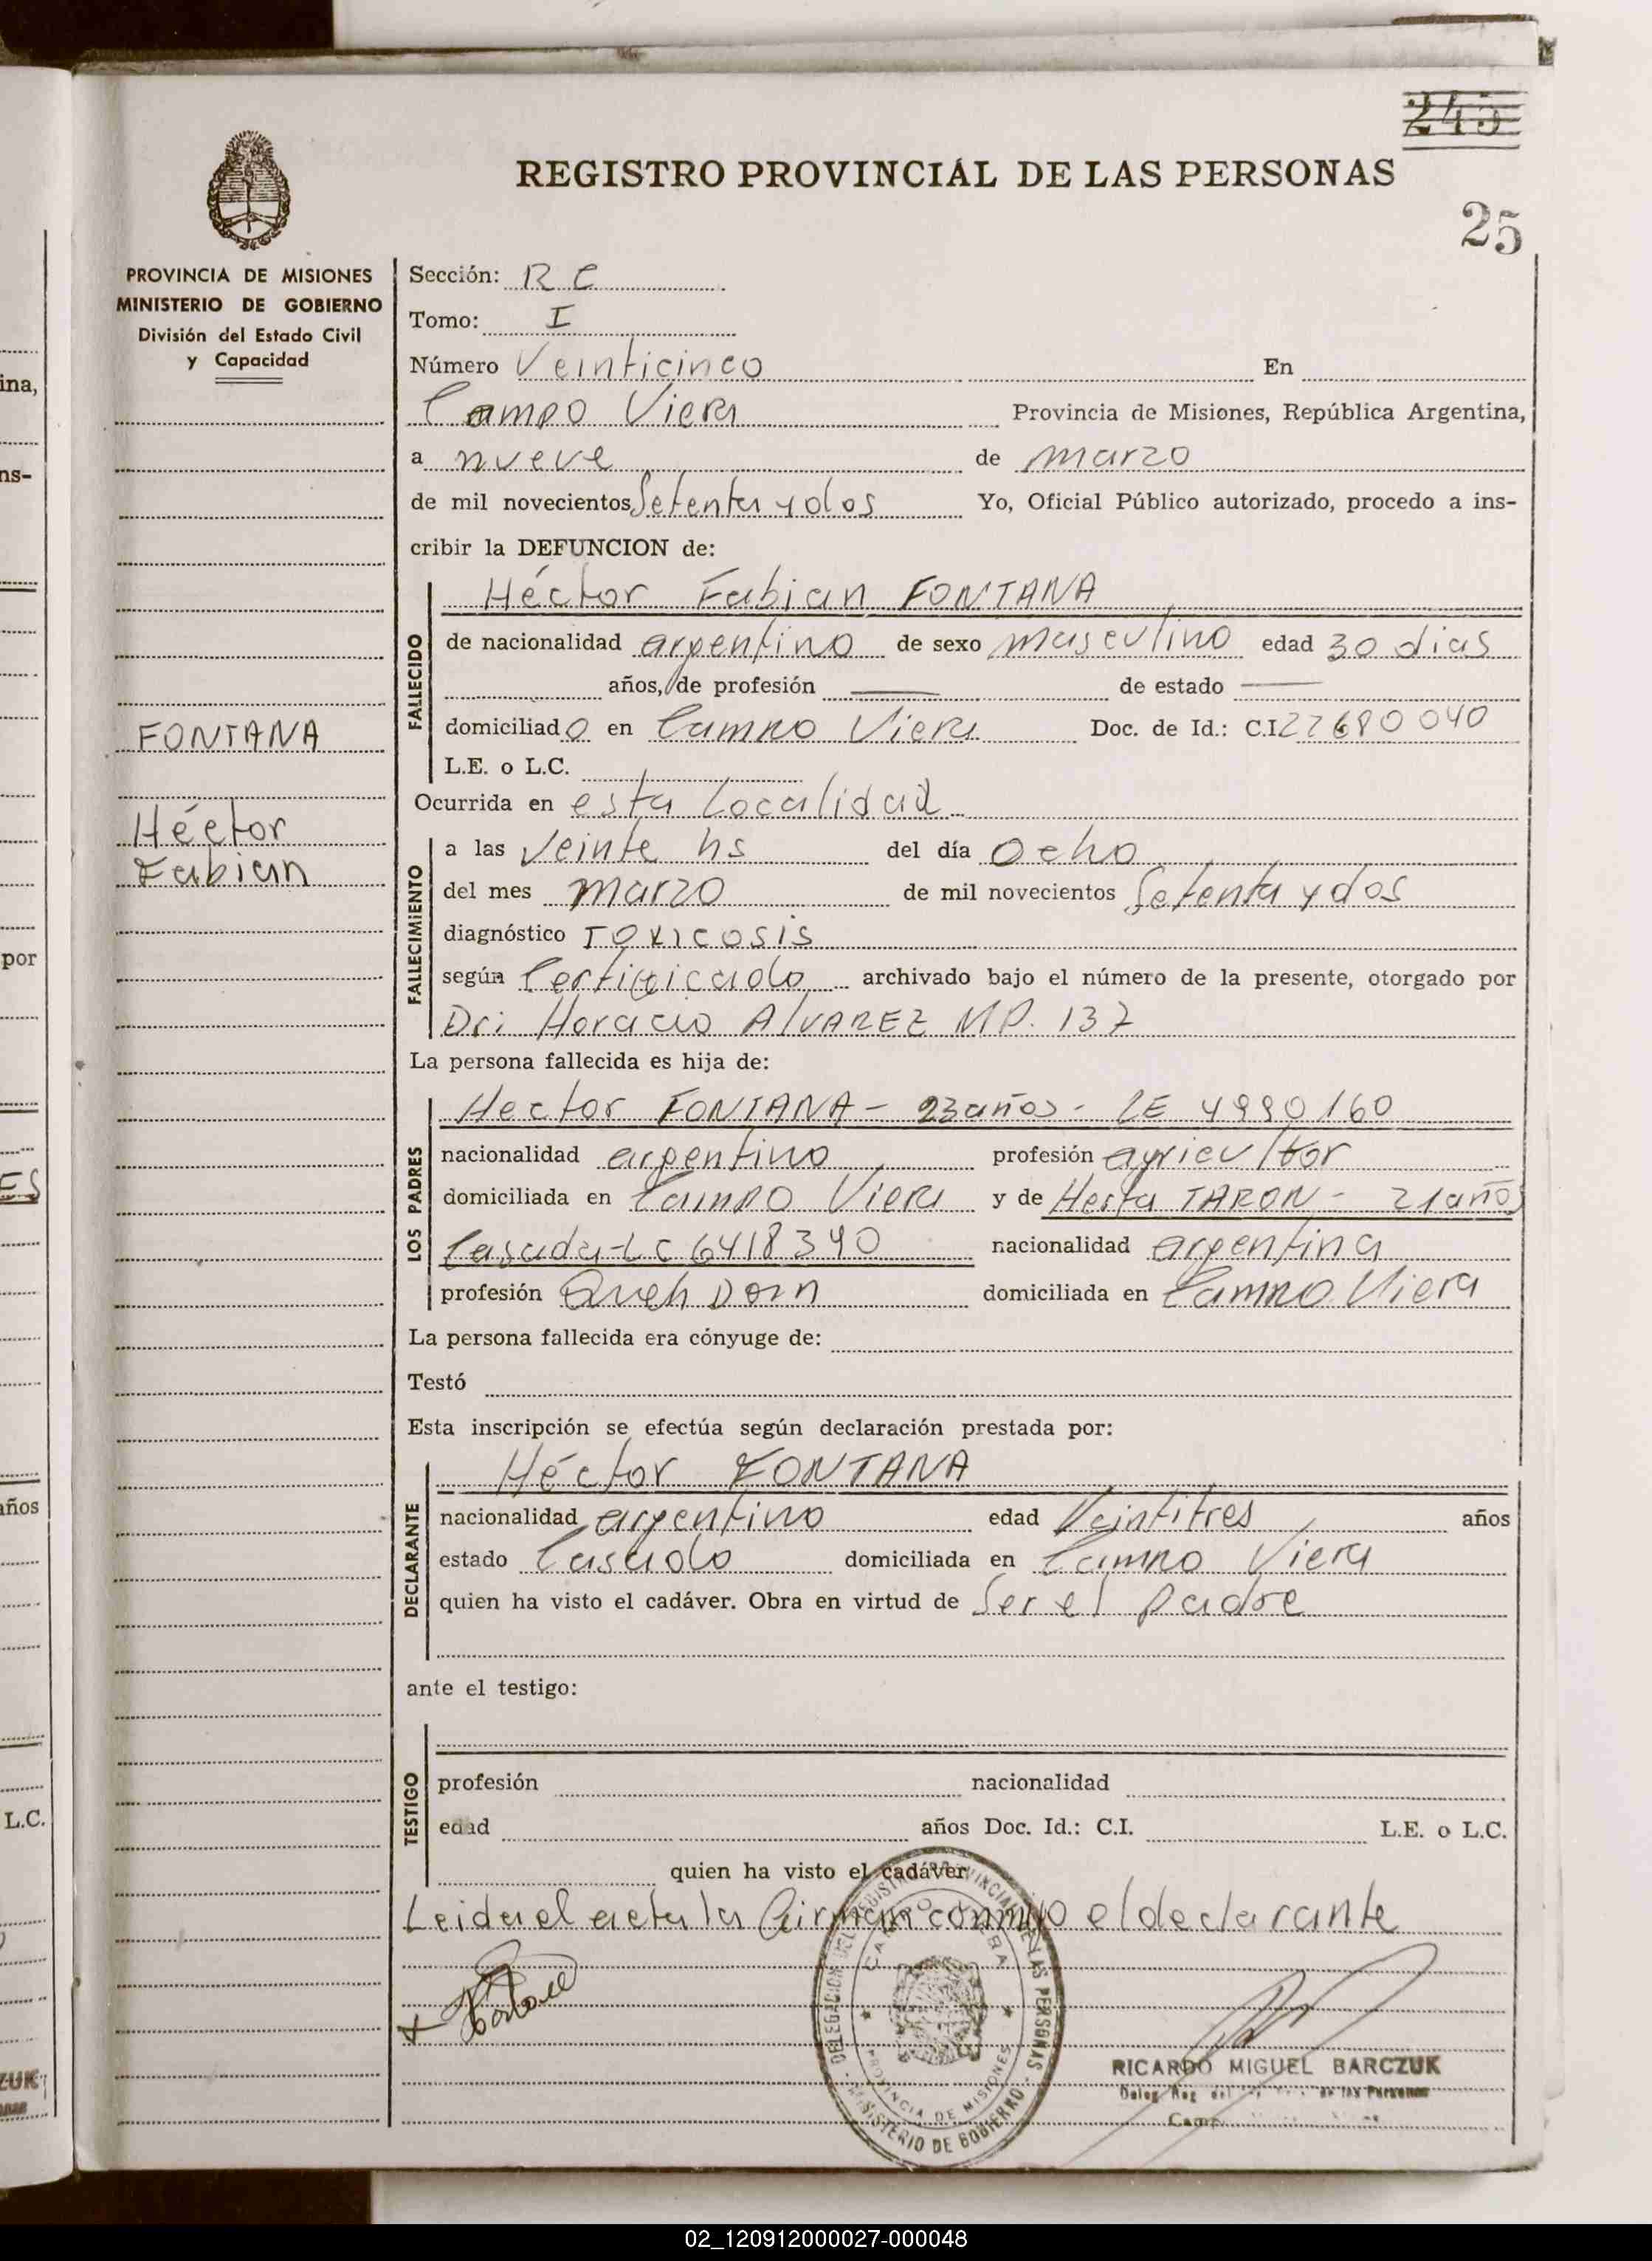 245
REGISTRO PROVINCIAL DE LAS PERSONAS
25
PROVINCIA DE MISIONES
MINISTERIO DE GOBIERNO
División del Estado Civil
y Capacidad
FONTANA
Héctor
Fabian
Sección: R C
Tomo: I
Número Veinticinco En
Campo Viera Provincia de Misiones, República Argentina,
a nueve de marzo
de mil novecientos Setenta y dos Yo, Oficial Público autorizado, procedo a ins-
cribir la DEFUNCION de:
FALLECIDO
Héctor Fabian FONTANA
de nacionalidad argentino de sexo masculino edad 30 dias
años, de profesión — de estado —
domiciliado en Campo Viera Doc. de Id.: C.I 22680040
L.E. o L.C.
Ocurrida en esta localidad
FALLECIMIENTO
a las veinte hs del día ocho
del mes marzo de mil novecientos Setenta y dos
diagnóstico TOXICOSIS
según Certificado archivado bajo el número de la presente, otorgado por
Dr: Horacio ALVAREZ MP. 137
La persona fallecida es hija de:
LOS PADRES
Hector FONTANA - 23 años - LE 4990160
nacionalidad argentino profesión agricultor
domiciliada en Campo Viera y de Herta TARON - 21 años
Casada - LC 6418390 nacionalidad argentina
profesión domiciliada en Campo Viera
La persona fallecida era cónyuge de:
Testó
Esta inscripción se efectúa según declaración prestada por:
DECLARANTE
Héctor FONTANA
nacionalidad argentino edad Veintitres años
estado Casado domiciliada en Campo Viera
quien ha visto el cadáver. Obra en virtud de Ser el padre
ante el testigo:
TESTIGO
profesión nacionalidad
edad años Doc. Id.: C.I. L.E. o L.C.
quien ha visto el cadáver
Leida el acta la firman conmigo el declarante
DELEGACION DEL REGISTRO PROVINCIAL DE LAS PERSONAS
MINISTERIO DE GOBIERNO
PROVINCIA DE MISIONES
RICARDO MIGUEL BARCZUK
ina,
ns-
por
ES
años
L.C.
ZUK
02_120912000027-000048